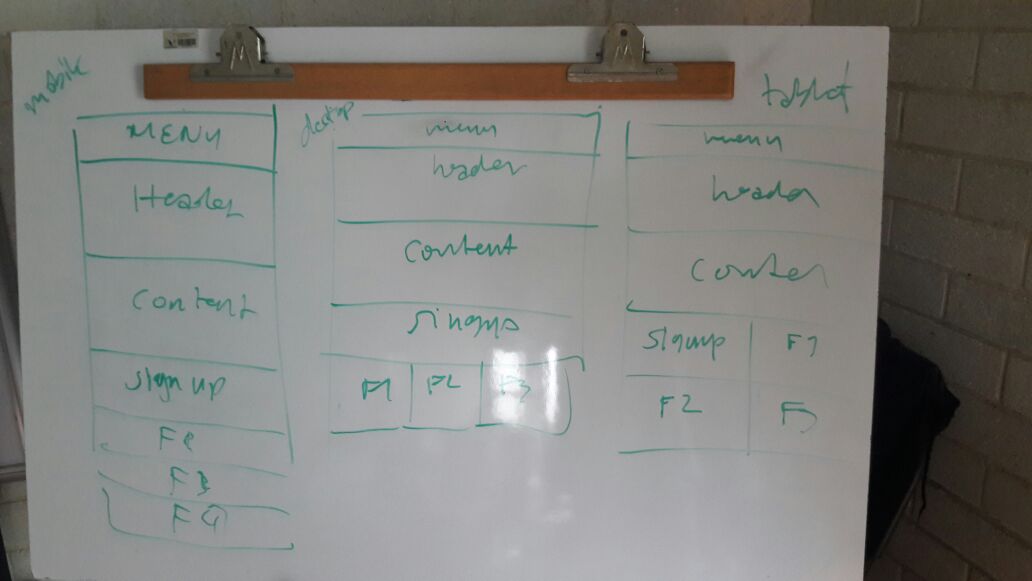 mobile
MENU
Header
Content
sign up
F2
F3
F4
desktop
menu
header
content
singup
F1 F2 F3
tablet
menu
header
Conten
signup F1
F2 F3